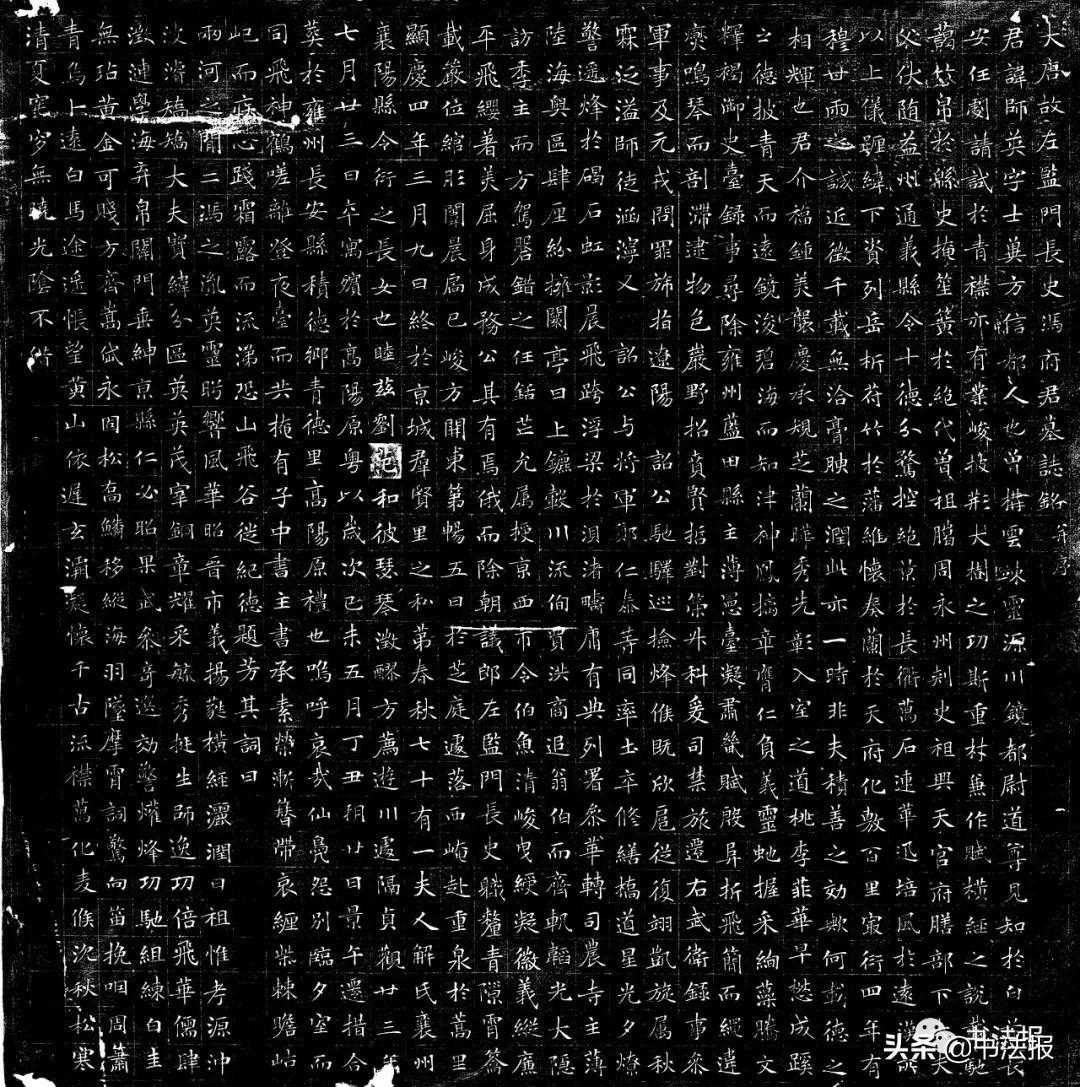 大唐故左監門長史馮府君墓誌銘并序
君諱師英字士莫方信都人也曾構雲靈源川鏡都尉道尊見知於白首長
安任劇請試於青襟亦有業峻披荊大樹之功斯重材兼作賦橫經之說載馳
蔼竹帛於縣史掩笙簧於絕代曾祖騰周永州刺史祖興天官府膳部下大
父伏随益州通義縣令十德分騖控絕於長衢萬石連華迅培風於遠
以上儀驅緯下資列岳析符竹於藩維懷奏蘭於天府化敷百里寂衍四年有
穆世而誠近徵千載無洽膏腴之潤此亦一時非夫積善之効歟何哉德之
相輝也君介福鍾美襲慶承規芝蘭秀先彰入室之道桃李菲華早懋成蹊
之德披青天而遠鏡浚碧海而知津神鳳摛章膺仁負義靈虵握采絢藻騰文
釋褐御史臺録事尋除雍州藍田縣主薄憑臺凝肅氣賦殷昇折飛簡而縱違
爕鳴琴而剖滞逮物色巖野招賁賢哲對策升科爰司禁旅遷右武衛録事叅
軍事及元戎問罪旆指遼陽 詔公馳驛巡撿烽候既欣扈從復翊凱旋属秋
霖泛溢師徒涵濘又 詔公与將軍郎仁泰等同率士卒修繕橋道星光夕燎
警遥烽於碣石虹影晨飛跨浮梁於浿渚疇庸有典列署叅華轉司農寺主薄
陸海輿區肆厘紛擁闕亭日上鑣轂川流佪賈洪商追翁伯而齊軌韜光大隱
訪季主而方駕磐錯之任銛芒允属授京西市令伯魚清峻曳綬凝徽義縱廉
平飛纓著美屈身成務公其有焉俄而除朝議郎左監門長史職釐青隙霄簪
載嚴位綰彤闈晨扃已峻方開東第暢五日於芝庭遽落西崦赴重泉於蒿里
顯慶四年三月九日終於京城羣賢里之私第春秋七十有一夫人解氏襄州
襄陽縣令衍之長女也睦兹劉范和彼瑟琴澂醪方薦遊川遽隔貞觀廿三年
七月廿三日卒寓殯於高陽原粤以歲次己未五月丁丑朔廿日景午遷措合
葬於雍州長安縣積德鄉青德里高陽原禮也嗚呼哀哉仙鳧怨別臨夕室而
司飛神鶴嗟離登夜臺而共掩有子中書主書承素縈漸簪帶哀纏柴棘瞻岵
屺而疚心踐霜露而流涕恐山飛谷徙紀德題芳其詞曰
兩河之間二馮之胤英靈肹響風華昭晉市義揚蕤橫經灑潤曰祖惟考源沖
波濬鵷大夫賢緯分區英英茂宰銅章耀采毓秀挺生師逸功倍飛華儒肆
澂漣學海弃帛關門垂紳京縣仁必昭果武叅奇巡効警燿烽功馳組練白圭
無玷黄金可賤方齊嵩岱永固松高鱗移縱海羽墜摩霄詞驚向笛挽咽周簫
青烏卜遠白馬途遥悵望黄山依遲玄灞懷千古派襟萬化麦候沈秋松寒
清夏窀穸無曉光陰不借
头条@书法报
书法报